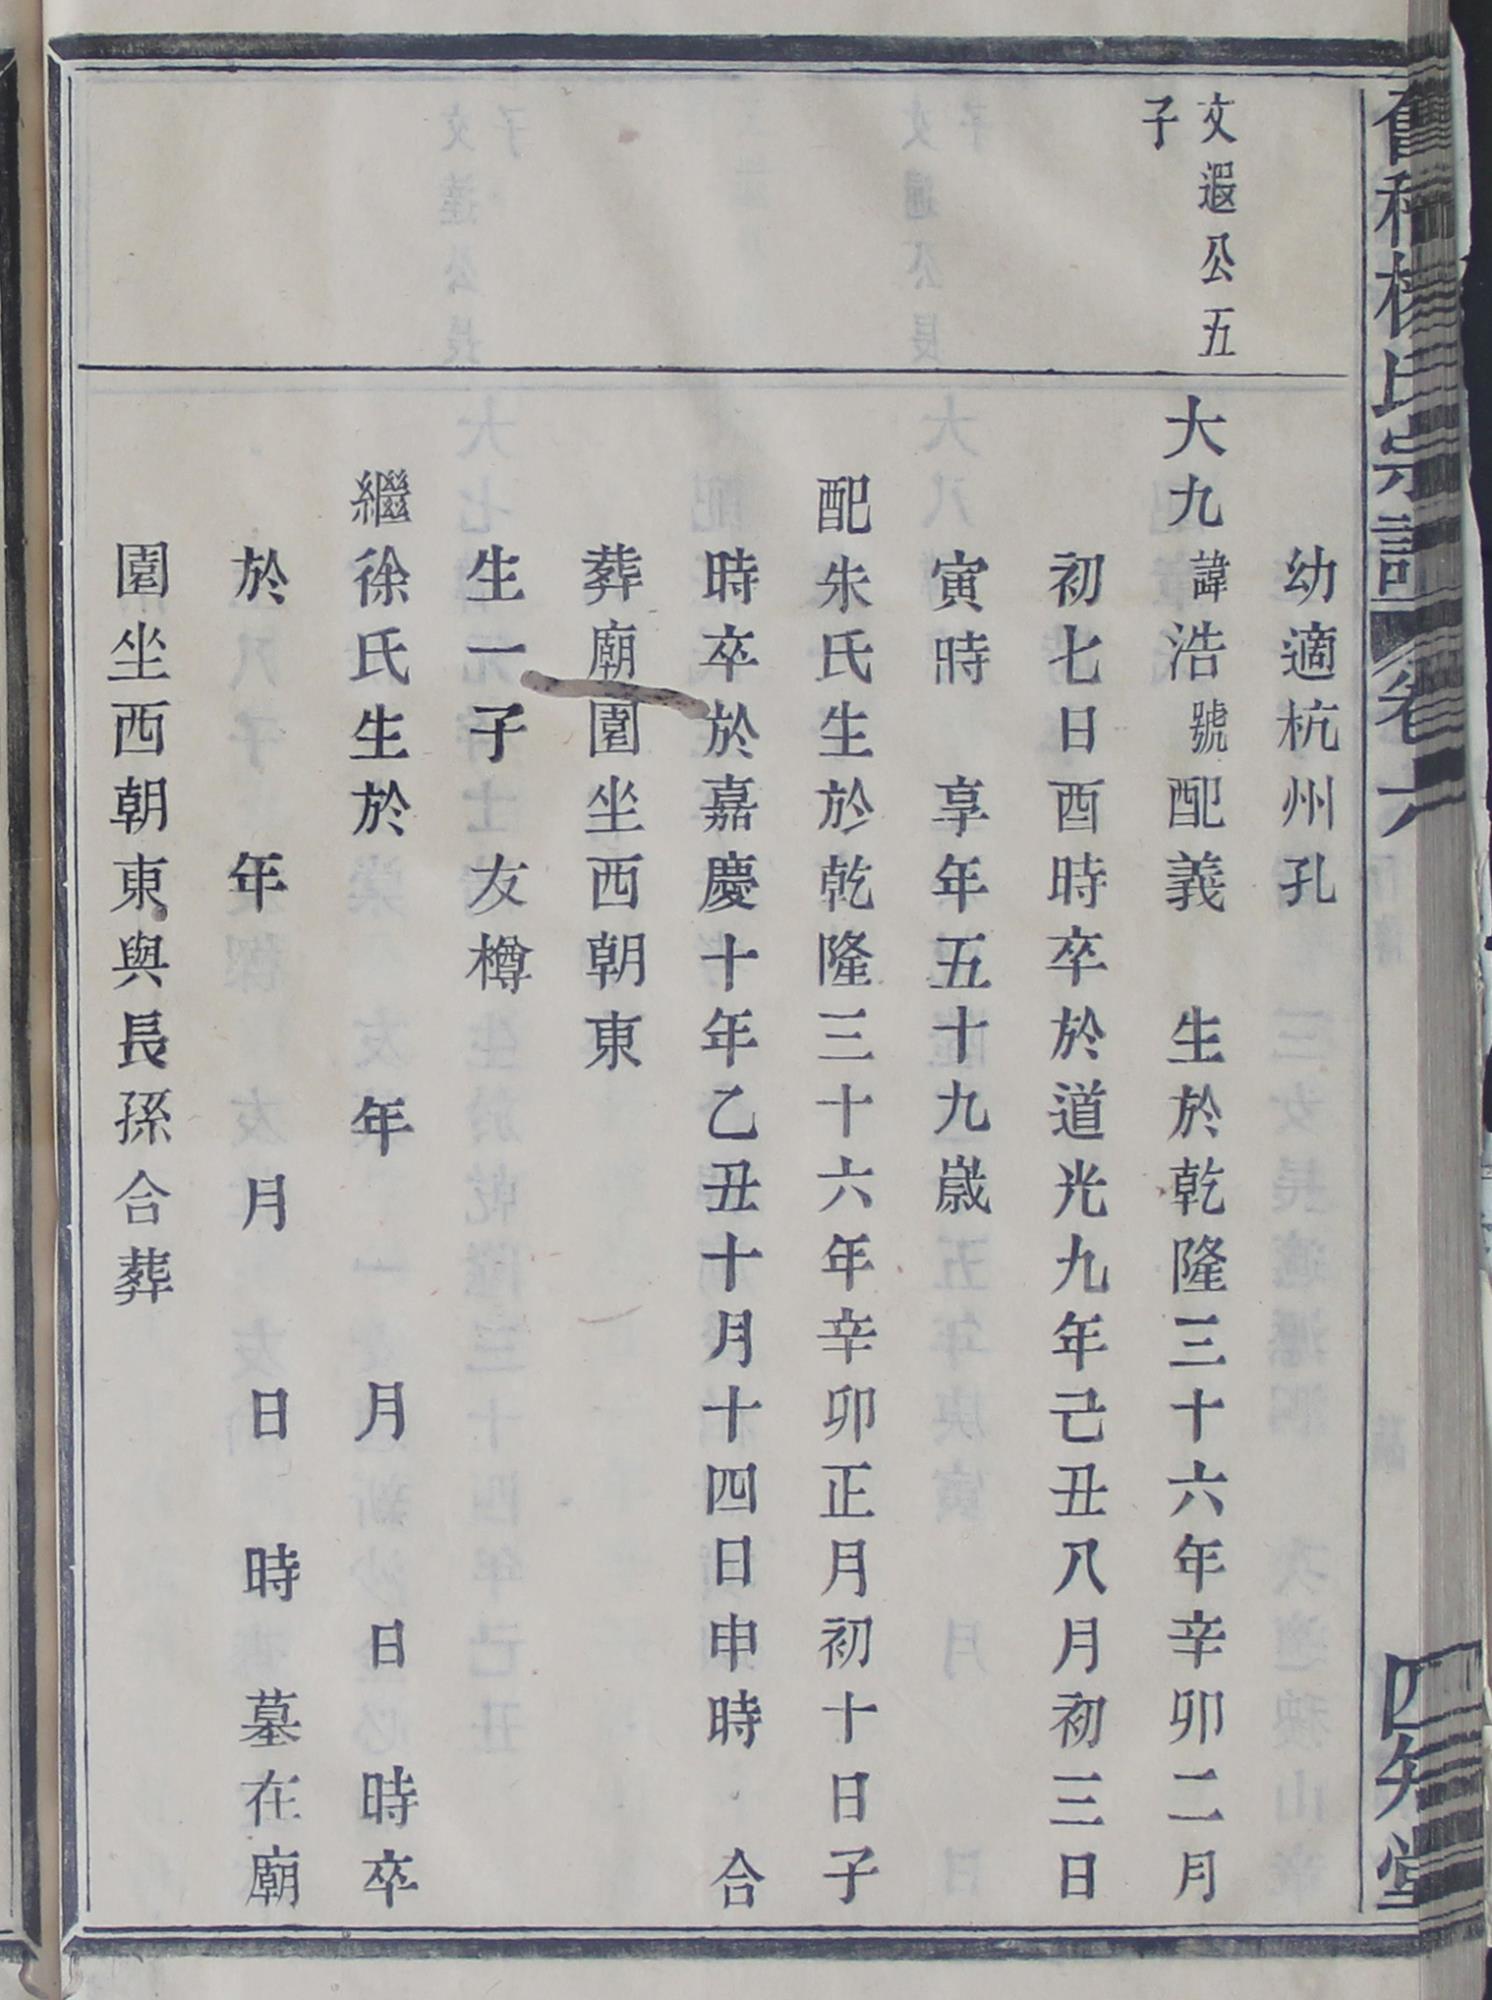 氏宗譜 卷六 四知堂
文遐公五
子
幼適杭州孔
大九諱浩號配義 生於乾隆三十六年辛卯二月
初七日酉時卒於道光九年己丑八月初三日
寅時 享年五十九歲
配朱氏生於乾隆三十六年辛卯正月初十日子
時卒於嘉慶十年乙丑十月十四日申時 合
葬廟園坐西朝東
生一子 友樽
繼徐氏生於 年 月 日 時卒
於 年 月 日 時 墓在廟
園坐西朝東與長孫合葬